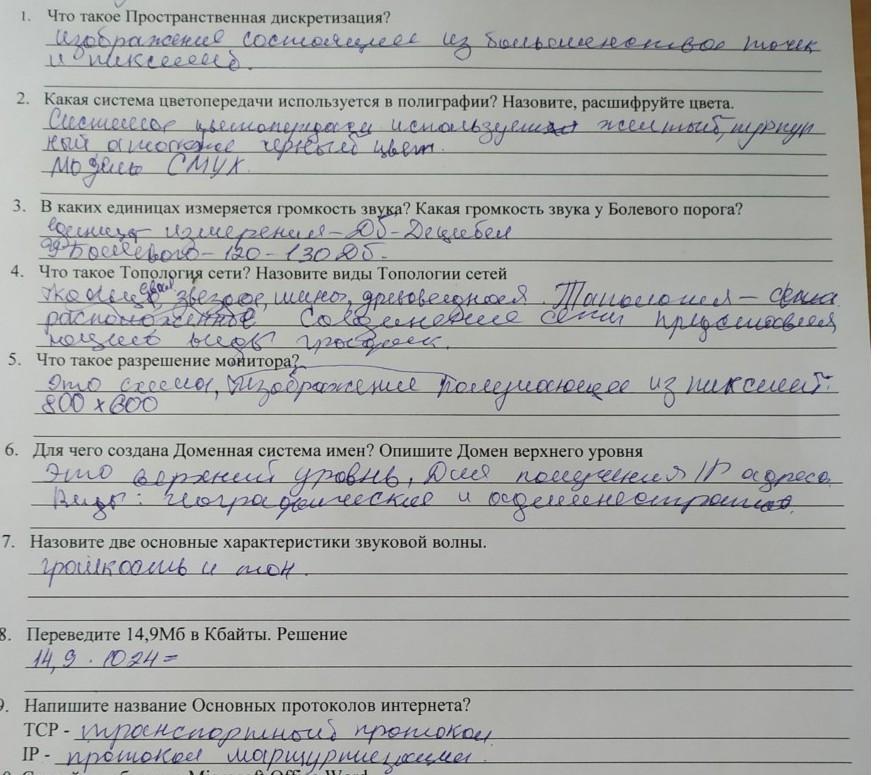 1. Что такое Пространственная дискретизация?
изображение состоящее из большенства точек
и пикселей.
2. Какая система цветопередачи используется в полиграфии? Назовите, расшифруйте цвета.
Система цветопередачи используется желтый, пурпур
ный а также черный цвет.
Модель СМУК.
3. В каких единицах измеряется громкость звука? Какая громкость звука у Болевого порога?
единицы измерения – Дб – Децибел
Болевого – 120 – 130 Дб.
4. Что такое Топология сети? Назовите виды Топологии сетей
кольцо звезда, шины, древовидная. Тапология – схема
расположенные Соединение сети представлен
виды график.
5. Что такое разрешение монитора?
Это схема, изображение получающее из пикселей.
800 х 600
6. Для чего создана Доменная система имен? Опишите Домен верхнего уровня
Это верхний уровнь, Для получения IP адреса.
Виды: географические и
7. Назовите две основные характеристики звуковой волны.
громкость и тон.
8. Переведите 14,9Мб в Кбайты. Решение
14,9 · 1024 =
9. Напишите название Основных протоколов интернета?
TCP - транспортный протокол.
IP - протокол